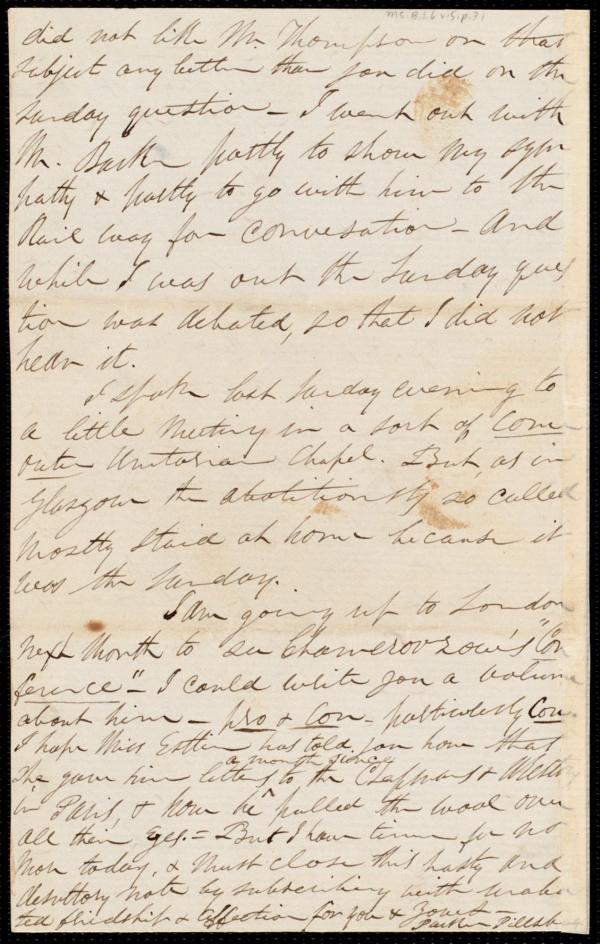 Ms. A.1.6 v.5, p.31
did not like Mr. Thompson on that
subject any better than you did on the
Sunday question - I went out with
Mr. Barker partly to show my sym
pathy & partly to go with him to the
Rail way for conversation - And
while I was out the Sunday ques
tion was debated, so that I did not
hear it.
I spoke last Sunday evening to
a little Meeting in a sort of Come
outer Unitarian Chapel. But, as in
Glasgow the abolitionists so called
Mostly staid at home because it
was the Sunday.
I am going up to London
next Month to see Chamerovzow's "Con
ference" - I could write you a volume
about him - pro & Con - particularly Con.
I hope Miss Estlin has told you how that
She gave him letters to the Chapmans & Westons
a month since
in Paris, & how he pulled the wool over
all their eyes. = But I have time for no
More today, & must close this hasty and
desultory note by subscribing with unaba
ted friendship & affection for you & yours -
Parker Pillsbury